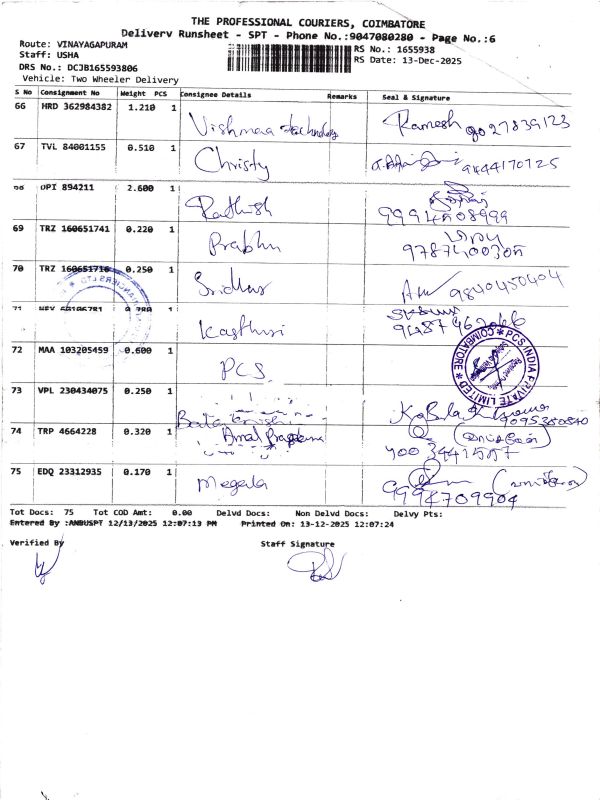 THE PROFESSIONAL COURIERS, COIMBATORE
Delivery Runsheet - SPT - Phone No.:9047080280 - Page No.:6
Route: VINAYAGAPURAM
Staff: USHA
RS No.: 1655938
DRS No.: DCJB165593806
RS Date: 13-Dec-2025
Vehicle: Two Wheeler Delivery
S No Consignment No Weight PCS Consignee Details Remarks Seal & Signature
66 HRD 362984382 1.210 1 Vishmaa Technology Ramesh 9027839123
67 TVL 84001155 0.510 1 Christy 9444170725
68 OPI 894211 2.600 1 Rathish 9994508999
69 TRZ 160651741 0.220 1 Prabhu பிரபு 9787400305
70 TRZ 160651716 0.250 1 Sridhar 9840450404
71 0.780 1 Kasthuri 9487462066
72 MAA 103205459 0.600 1 PCS
PCS INDIA PRIVATE LIMITED * COIMBATORE *
73 VPL 230434075 0.250 1 9095380840
74 TRP 4664228 0.320 1
75 EDQ 23312935 0.170 1 Megala 9994709904
Tot Docs: 75 Tot COD Amt: 0.00 Delvd Docs: Non Delvd Docs: Delvy Pts:
Entered By :ANBUSPT 12/13/2025 12:07:13 PM Printed On: 13-12-2025 12:07:24
Verified By Staff Signature